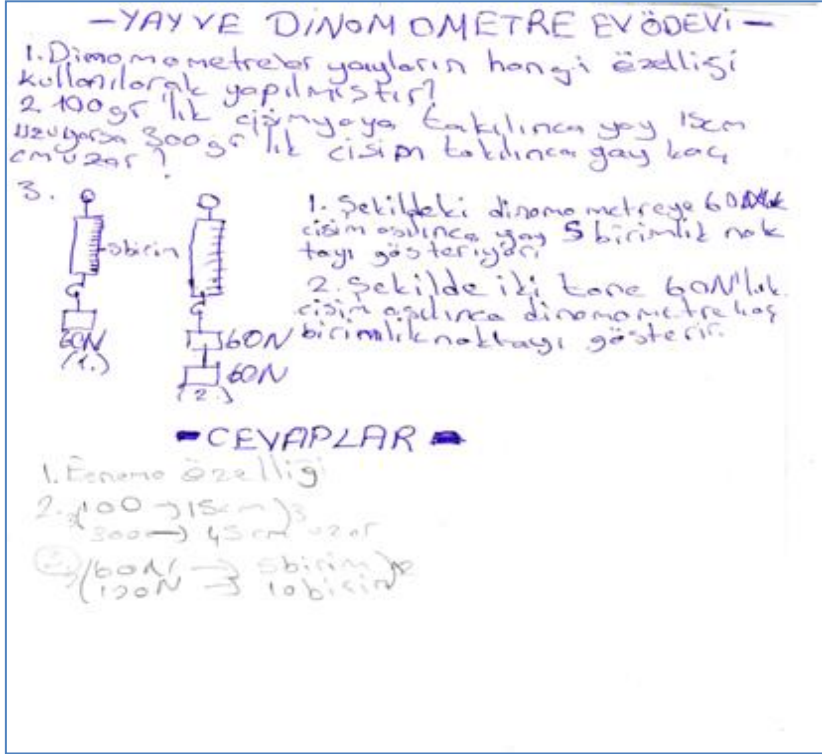 -YAY VE DİNOMOMETRE EVÖDEVİ-
1. Dinomometreler yayların hangi özelliği
kullanılarak yapılmıştır?
2. 100gr'lık cisim yaya takılınca yay 15cm
uzuyorsa 300gr'lık cisim takılınca yay kaç
cm uzar?
3.
5birim
60N
(1.)
60N
60N
(2.)
1. Şekildeki dinomometreye 60N'luk
cisim asılınca yay 5 birimlik nok
tayı gösteriyor.
2. Şekilde iki tane 60N'luk
cisim asılınca dinomometre kaç
birimlik noktayı gösterir.
-CEVAPLAR-
1. Esneme özelliği
2. (100 → 15cm) 3
300 → 45 cm uzar
60N → 5birim
120N → 10birim